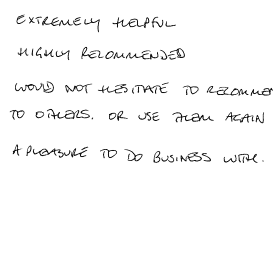 EXTREMELY HELPFUL
HIGHLY RECOMMENDED
WOULD NOT HESITATE TO RECOMMEN
TO OTHERS. OR USE THEM AGAIN
A PLEASURE TO DO BUSINESS WITH.